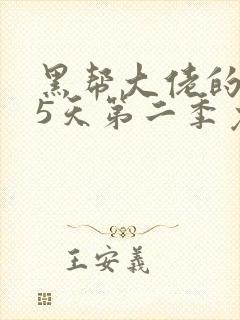 黑帮大佬的
5天第二季
王安義